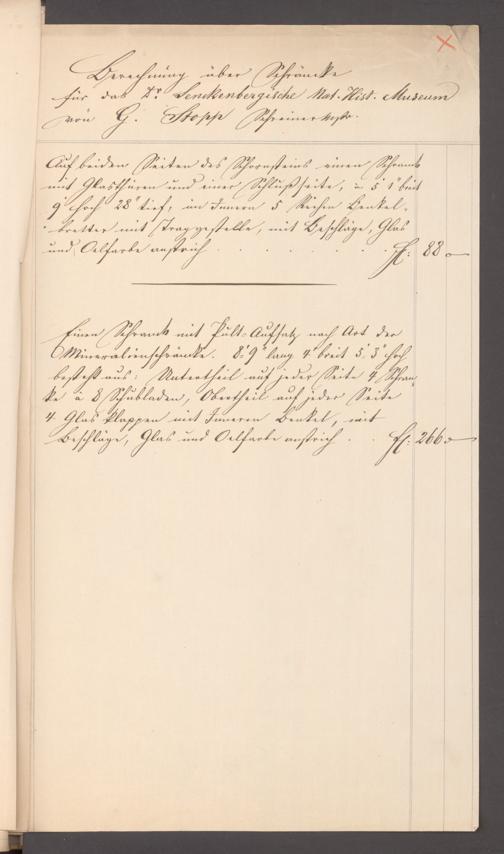 Berechnung über Schräncke
für das Dr. Senckenbergische Nat. Hist. Museum
von G. Stopp Schreinermstr.
Auf beiden Seiten des Schornsteins einen Schrank
mit Glasthüren und einer Schlußseite, à 5' 1" breit
9' hoch 28" tief, im Innern 5 Reihen Senkel-
bretter mit Traggestelle, mit Beschläge, Glas
und Oelfarbe anstrich . . . . . . . fl: 88 —
Einen Schrank mit Pult-Aufsatz nach Art der
Mineralienschränke. 8' 9" lang 4' breit 5' 5" hoch
besteht aus: Untertheil auf jeder Seite 4 Schrän-
ke à 8 Schubladen, Obertheil auf jeder Seite
4 Glas klappen mit Inneren Senkel, mit
Beschläge, Glas und Oelfarbe anstrich . . fl: 266 —